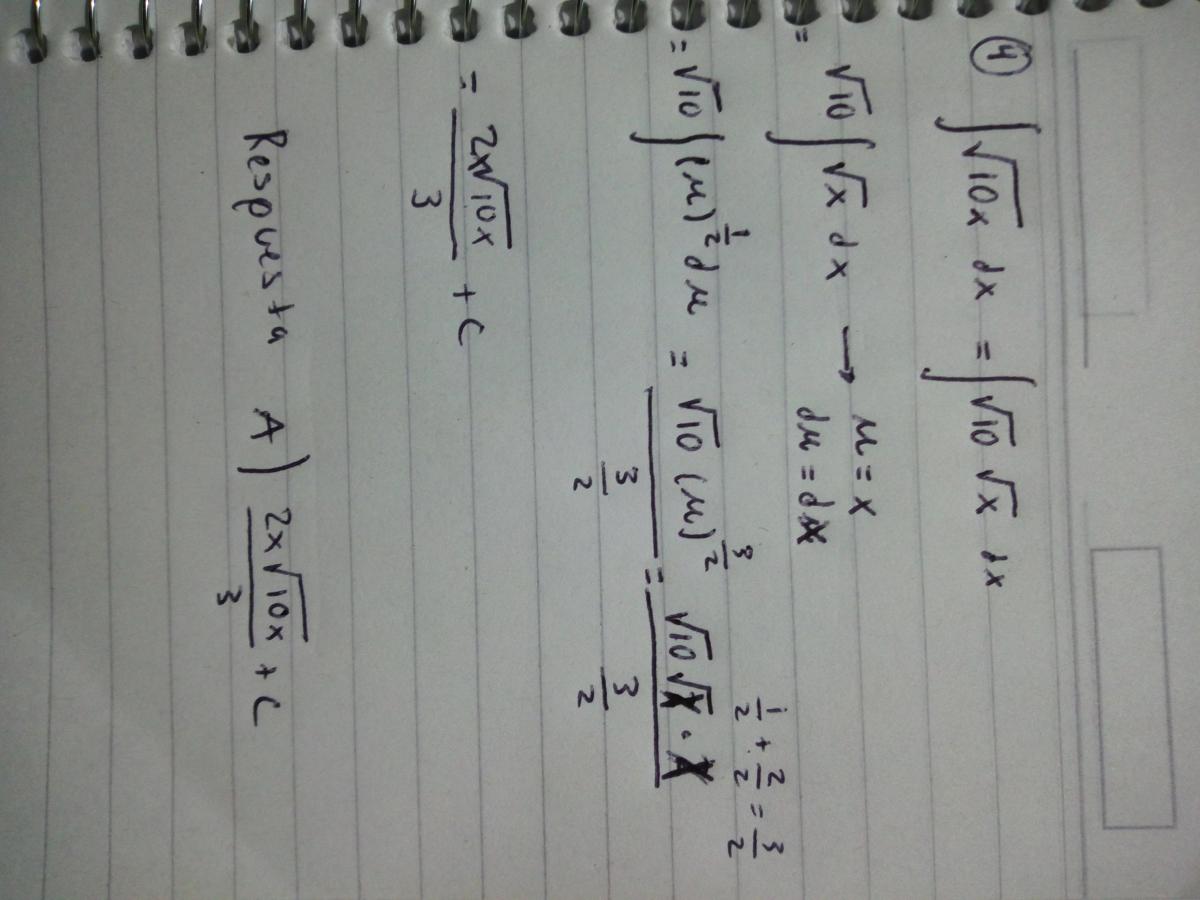 ④ ∫√10x dx = ∫√10 √x dx
= √10 ∫√x dx → u = x
du = dx
1/2 + 2/2 = 3/2
= √10 ∫(u)^1/2 du = √10 (u)^3/2 / 3/2 = √10 √x · x / 3/2
= 2x√10x / 3 + C
Respuesta A) 2x√10x / 3 + C